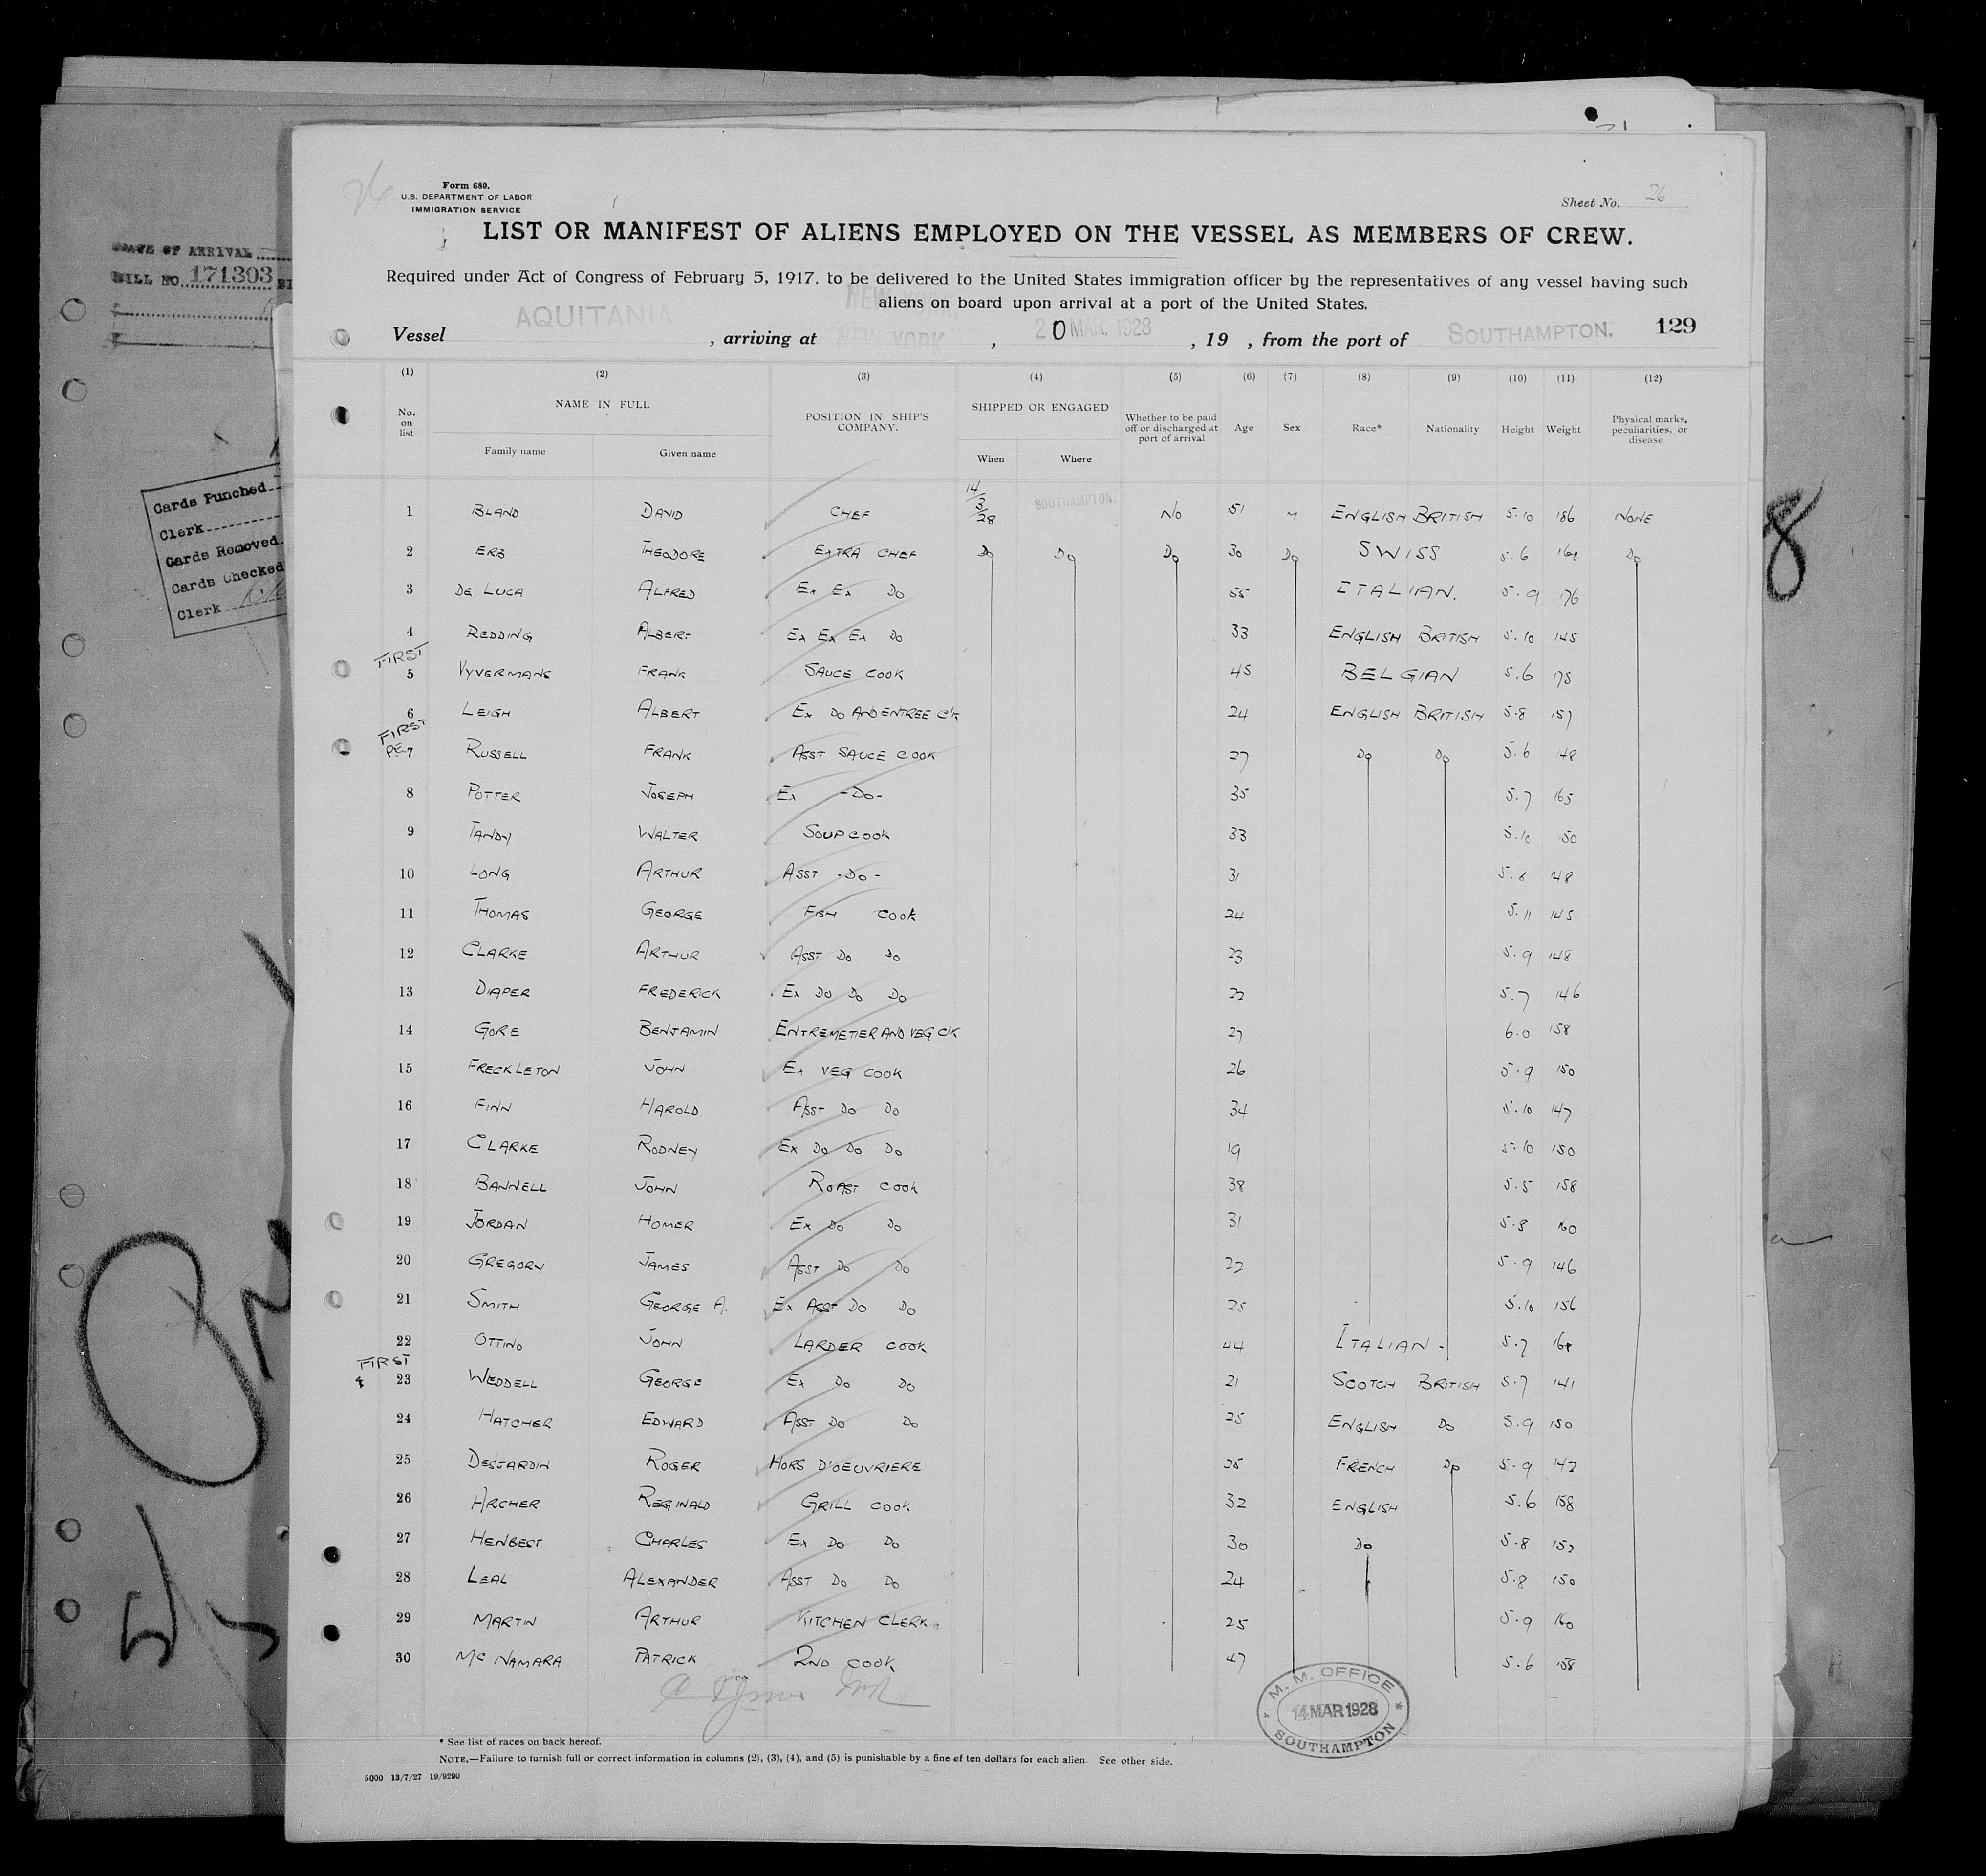 26
Form 680.
U.S. DEPARTMENT OF LABOR
IMMIGRATION SERVICE
Sheet No. 26
LIST OR MANIFEST OF ALIENS EMPLOYED ON THE VESSEL AS MEMBERS OF CREW.
Required under Act of Congress of February 5, 1917, to be delivered to the United States immigration officer by the representatives of any vessel having such
aliens on board upon arrival at a port of the United States.
Vessel AQUITANIA, arriving at NEW YORK, 20 MAR. 1928, 19 , from the port of SOUTHAMPTON. 129
(1) (2) (3) (4) (5) (6) (7) (8) (9) (10) (11) (12)
No. on list NAME IN FULL Family name Given name POSITION IN SHIP'S COMPANY. SHIPPED OR ENGAGED When Where Whether to be paid off or discharged at port of arrival Age Sex Race* Nationality Height Weight Physical marks, peculiarities, or disease
1 BLAND DAVID CHEF 14/3/28 SOUTHAMPTON. NO 51 M ENGLISH BRITISH 5.10 186 NONE
2 ERB THEODORE EXTRA CHEF DO DO DO 30 DO SWISS 5.6 DO
3 DE LUCA ALFRED EX EX DO 55 ITALIAN. 5.9 176
4 REDDING ALBERT EX EX EX DO 33 ENGLISH BRITISH 5.10 145
FIRST
5 VYVERMANS FRANK SAUCE COOK 45 BELGIAN 5.6 175
6 LEIGH ALBERT EX DO AND ENTREE C'K 24 ENGLISH BRITISH 5.8 157
FIRST
7 RUSSELL FRANK ASST SAUCE COOK 27 DO DO 5.6 148
8 POTTER JOSEPH EX -DO- 35 5.7 165
9 TANDY WALTER SOUP COOK 33 5.10 150
10 LONG ARTHUR ASST -DO- 31 148
11 THOMAS GEORGE FISH COOK 24 5.11 145
12 CLARKE ARTHUR ASST DO DO 23 5.9 148
13 DIAPER FREDERICK EX DO DO DO 22 5.7 146
14 GORE BENJAMIN ENTREMETIER AND VEG C'K 27 6.0 158
15 FRECKLETON JOHN EX VEG COOK 26 5.9 150
16 FINN HAROLD ASST DO DO 34 5.10 147
17 CLARKE RODNEY EX DO DO DO 19 5.10 150
18 BANNELL JOHN ROAST COOK 38 5.5 158
19 JORDAN HOMER EX DO DO 31 5.8 160
20 GREGORY JAMES ASST DO DO 22 5.9 146
21 SMITH GEORGE A. EX ASST DO DO 25 5.10 156
22 OTTINO JOHN LARDER COOK 44 ITALIAN - 5.7
FIRST
23 WEDDELL GEORGE EX DO DO 21 SCOTCH BRITISH 5.7 141
24 HATCHER EDWARD ASST DO DO 25 ENGLISH DO 5.9 150
25 DESJARDIN ROGER HORS D'OEUVRIERE 25 FRENCH DO 5.9 142
26 ARCHER REGINALD GRILL COOK 32 ENGLISH 5.6 158
27 HENBEST CHARLES EX DO DO 30 DO 5.8 152
28 LEAL ALEXANDER ASST DO DO 24 5.8 150
29 MARTIN ARTHUR KITCHEN CLERK. 25 5.9 160
30 MC NAMARA PATRICK 2ND COOK 47 5.6 158
M. M. OFFICE
14 MAR 1928
SOUTHAMPTON
* See list of races on back hereof.
NOTE.—Failure to furnish full or correct information in columns (2), (3), (4), and (5) is punishable by a fine of ten dollars for each alien. See other side.
5000 13/7/27 19/9290
OF ARRIVAL
BILL NO. 171303
Cards Punched
Clerk
Cards Removed
Cards Checked
Clerk
8